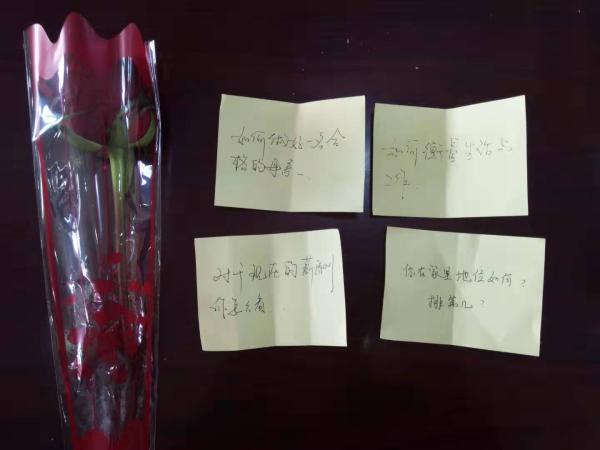 如何做好一名合
格的母亲
如何衡量生活与
工作
对于现在的薪酬
你怎么看
你在家里地位如何？
排第几？